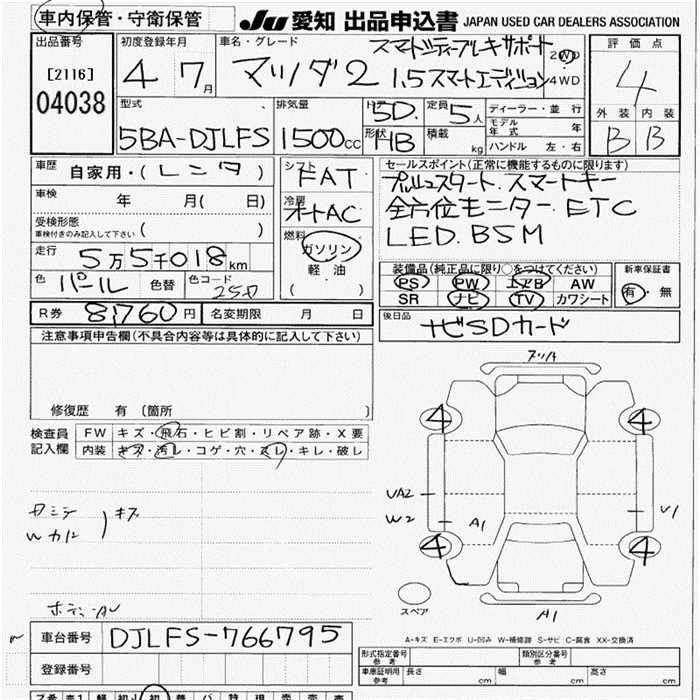 車内保管・守衛保管
JU 愛知 出品申込書 JAPAN USED CAR DEALERS ASSOCIATION
出品番号
[2116]
04038
初度登録年月
4 7月
車名・グレード
スマートシティブレーキサポート
マツダ2 1.5 スマートエディション
2WD
4WD
評価点
4
外装 内装
B B
型式
5BA-DJLFS
排気量
1500cc
ドア 5D.
形状 HB
定員 5人
積載 kg
ディーラー・並行
モデル年式 年
ハンドル 左・右
車歴 自家用・(レンタ)
車検 年 月( 日)
受検形態
車検付きのみ記入して下さい ( )
走行 5万5千018km
色 パール 色替 色コード 25D
シフト FAT
冷房 オートAC
燃料
ガソリン
軽油
( )
セールスポイント(正常に機能するものに限ります)
プッシュスタート.スマートキー
全方位モニター.ETC
LED.BSM
装備品(純正品に限り○をつけてください)
PS PW エアB AW
SR ナビ TV カワシート
新車保証書
有・無
R券 8,760円 名変期限 月 日
後日品
ナビSDカード
注意事項申告欄(不具合内容等は具体的に記入して下さい)
修復歴 有 (箇所 )
検査員記入欄
FW キズ・飛石・ヒビ割・リペア跡・X要
内装 キズ・汚レ・コゲ・穴・スレ・キレ・破レ
キズ
4 4
UA2
W2
A1
4 4
A1
スペア
A-キズ E-エクボ U-凹み W-補修跡 S-サビ C-腐食 XX-交換済
車台番号 DJLFS-766795
登録番号
形式指定番号 参考
類別区分番号 参考
車庫証明用 参考 長さ cm 幅 cm 高さ cm